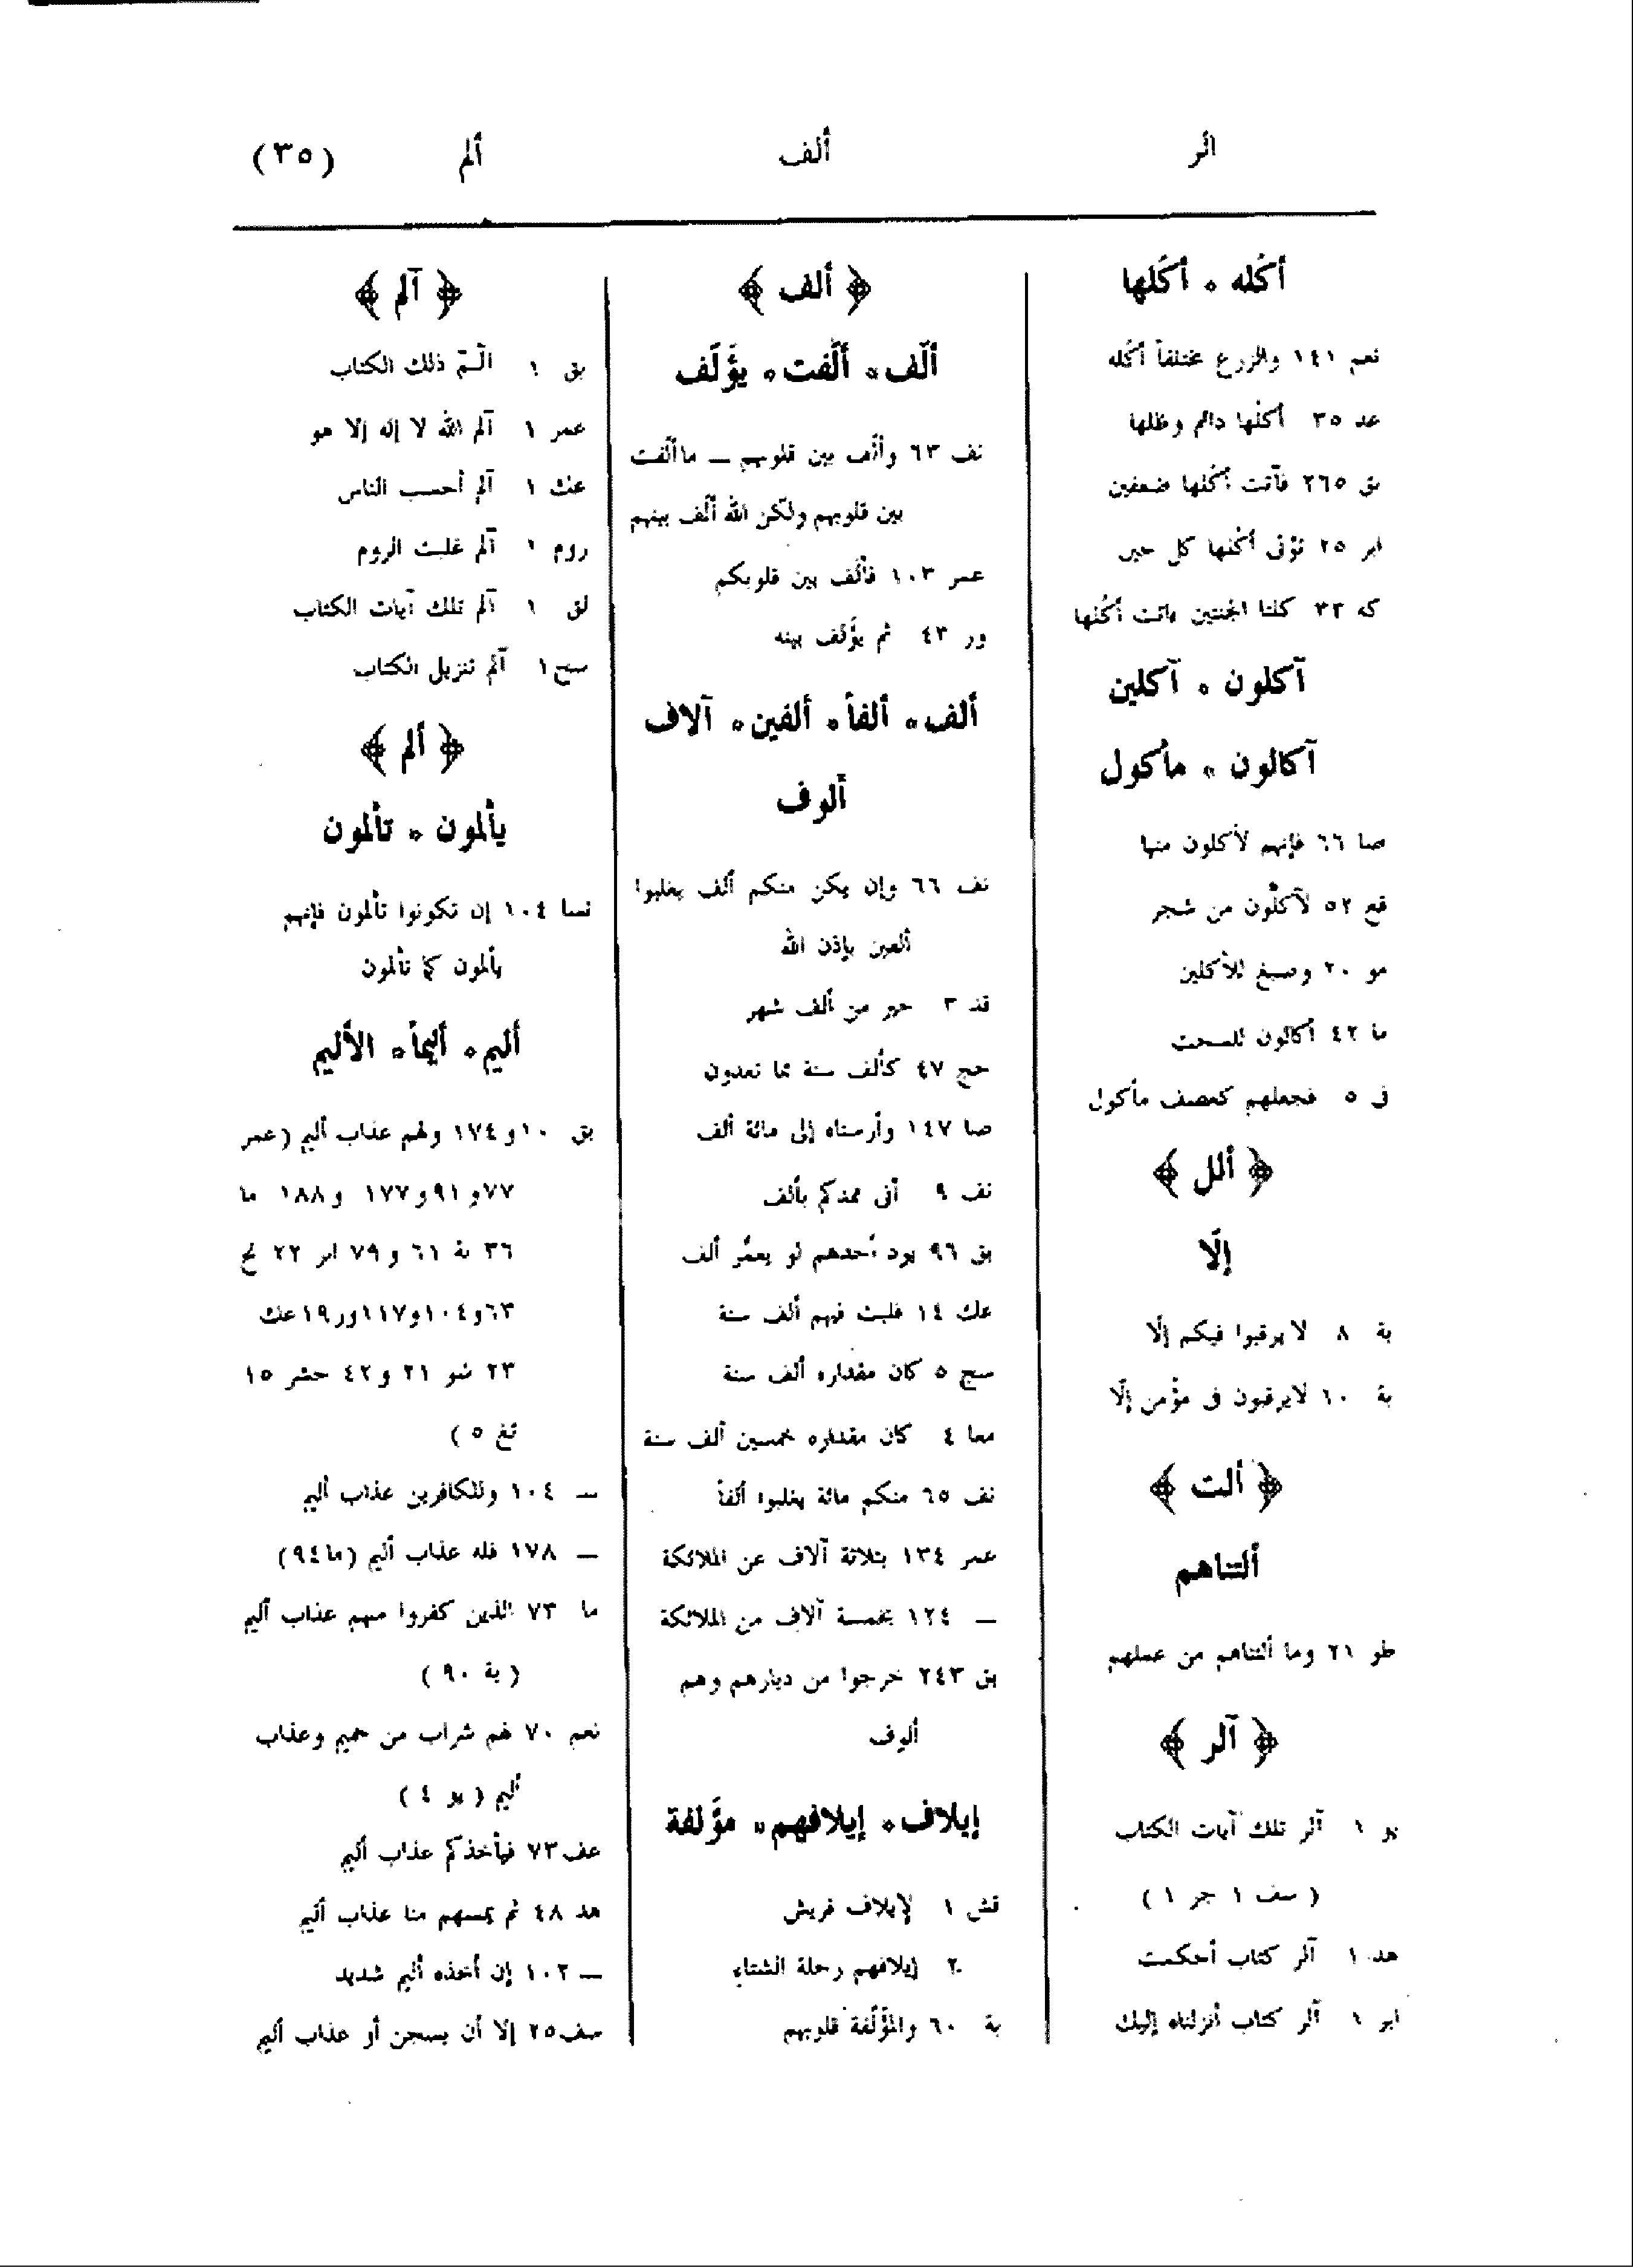 الر ألف ألم (٣٥)
أكُله ۰ أكُلها
نعم ١٤١ والزرع مختلفاً أكُله
عد ٣٥ أكلُها دائم وظلها
بق ٢٦٥ فآتت أكُلها ضعفين
ابر ٢٥ تؤتى أكُلها كل حين
كه ٣٣ كلتا الجنتين ءاتت أكُلها
آكلون ۰ آكلين
آكالون ۰ مأكول
صا ٦٦ فإنهم لآكلون منها
قع ٥٢ لآكلُون من شجر
مو ٢٠ وصبغ للآكلين
ما ٤٢ أكالون للسحت
فى ٥ فجعلهم كعصف مأكول
﴿ ألل ﴾
إلّا
بة ٨ لا يرقبوا فيكم إلّا
بة ١٠ لايرقبون فى مؤمن إلّا
﴿ ألت ﴾
ألتناهم
طو ٢١ وما ألتناهم من عملهم
﴿ آلر ﴾
يو ١ آلر تلك آيات الكتاب
( سف ١ جر ١ )
هد ١ آلر كتاب أحكمت
ابر ١ آلر كتاب أنزلناه إليك
﴿ ألف ﴾
ألّف ۰ ألّفت ۰ يؤَلّف
نف ٦٣ وألّف بين قلوبهم — ماألّفت
بين قلوبهم ولكن الله ألّف بينهم
عمر ١٠٣ فألّف بين قلوبكم
ور ٤٣ ثم يؤَلّف بينه
ألف ۰ ألفاً ۰ ألفين ۰ آلاف
ألوف
نف ٦٦ وإن يكن منكم ألف يغلبوا
ألفين بإذن الله
قد ٣ خير من ألف شهر
حج ٤٧ كألف سنة مما تعدون
صا ١٤٧ وأرسلناه إلى مائة ألف
نف ٩ أنى ممدكم بألف
بق ٩٦ يود أحدهم لو يعمَّر ألف
عك ١٤ فلبث فيهم ألف سنة
سج ٥ كان مقداره ألف سنة
معا ٤ كان مقداره خمسين ألف سنة
نف ٦٥ منكم مائة يغلبوا ألفاً
عمر ١٣٤ بثلاثة آلاف عن الملائكة
— ١٢٤ بخمسة آلاف من الملائكة
بق ٢٤٣ خرجوا من ديارهم وهم
ألوف
إيلاف ۰ إيلافهم ۰ مؤَلفة
قش ١ لإيلاف قريش
٢ إيلافهم رحلة الشتاء
بة ٦٠ والمؤَلّفة قلوبهم
﴿ آلم ﴾
بق ١ الٓـمّ ذلك الكتاب
عمر ١ آلم الله لا إله إلا هو
عنك ١ آلم أحسب الناس
روم ١ آلم غلبت الروم
لق ١ آلم تلك آيات الكتاب
سج ١ آلم تنزيل الكتاب
﴿ ألم ﴾
يألمون ۰ تألمون
نسا ١٠٤ إن تكونوا تألمون فإنهم
يألمون كما تألمون
أليم ۰ أليماً ۰ الأليم
بق ١٠ و١٧٤ ولهم عذاب أليم (عمر
٧٧ و٩١ و١٧٧ و١٨٨ ما
٣٦ بة ٦١ و٧٩ ابر ٢٢ نح
٦٣ و١٠٤ و١١٧ ور ١٩ عنك
٢٣ شو ٢١ و٤٢ حشر ١٥
تغ ٥ )
— ١٠٤ وللكافرين عذاب أليم
— ١٧٨ فله عذاب أليم (ما ٩٤)
ما ٧٣ الذين كفروا منهم عذاب أليم
( بة ٩٠ )
نعم ٧٠ لهم شراب من حميم وعذاب
أليم ( يو ٤ )
عف ٧٣ فيأخذكم عذاب أليم
هد ٤٨ ثم يمسهم منا عذاب أليم
— ١٠٢ إن أخذه أليم شديد
سف ٢٥ إلا أن يسجن أو عذاب أليم